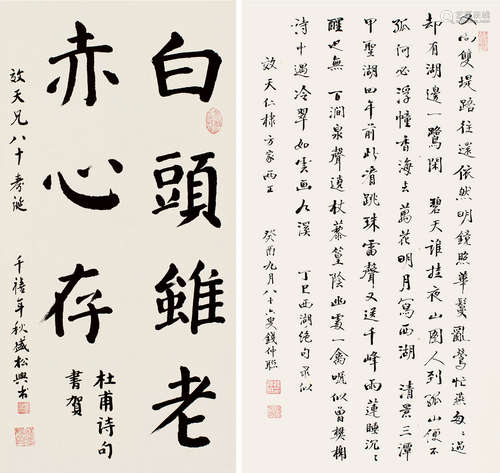 又向雙堤路往還依然明鏡照華鬢亂鶯忙燕匆匆過
却有湖邊一鷺閑 碧天誰挂夜山圖人到孤山便不
孤何必浮幢香海去萬花明月寫西湖 清景三潭
甲聖湖四年前此看跳珠雷聲又送千峰雨蓮睡沉沉
醒也無 百澗泉聲遶杖藜篁陰幽處一禽嗁似曾樊榭
詩中過冷翠如雲畫九溪 丁巳西湖絕句录似
放天仁棣方家兩正
癸酉九月八十六叟錢仲聯
白頭雖老
赤心存
杜甫詩句
書賀
放天兄八十壽誕
千禧年秋盛松興書